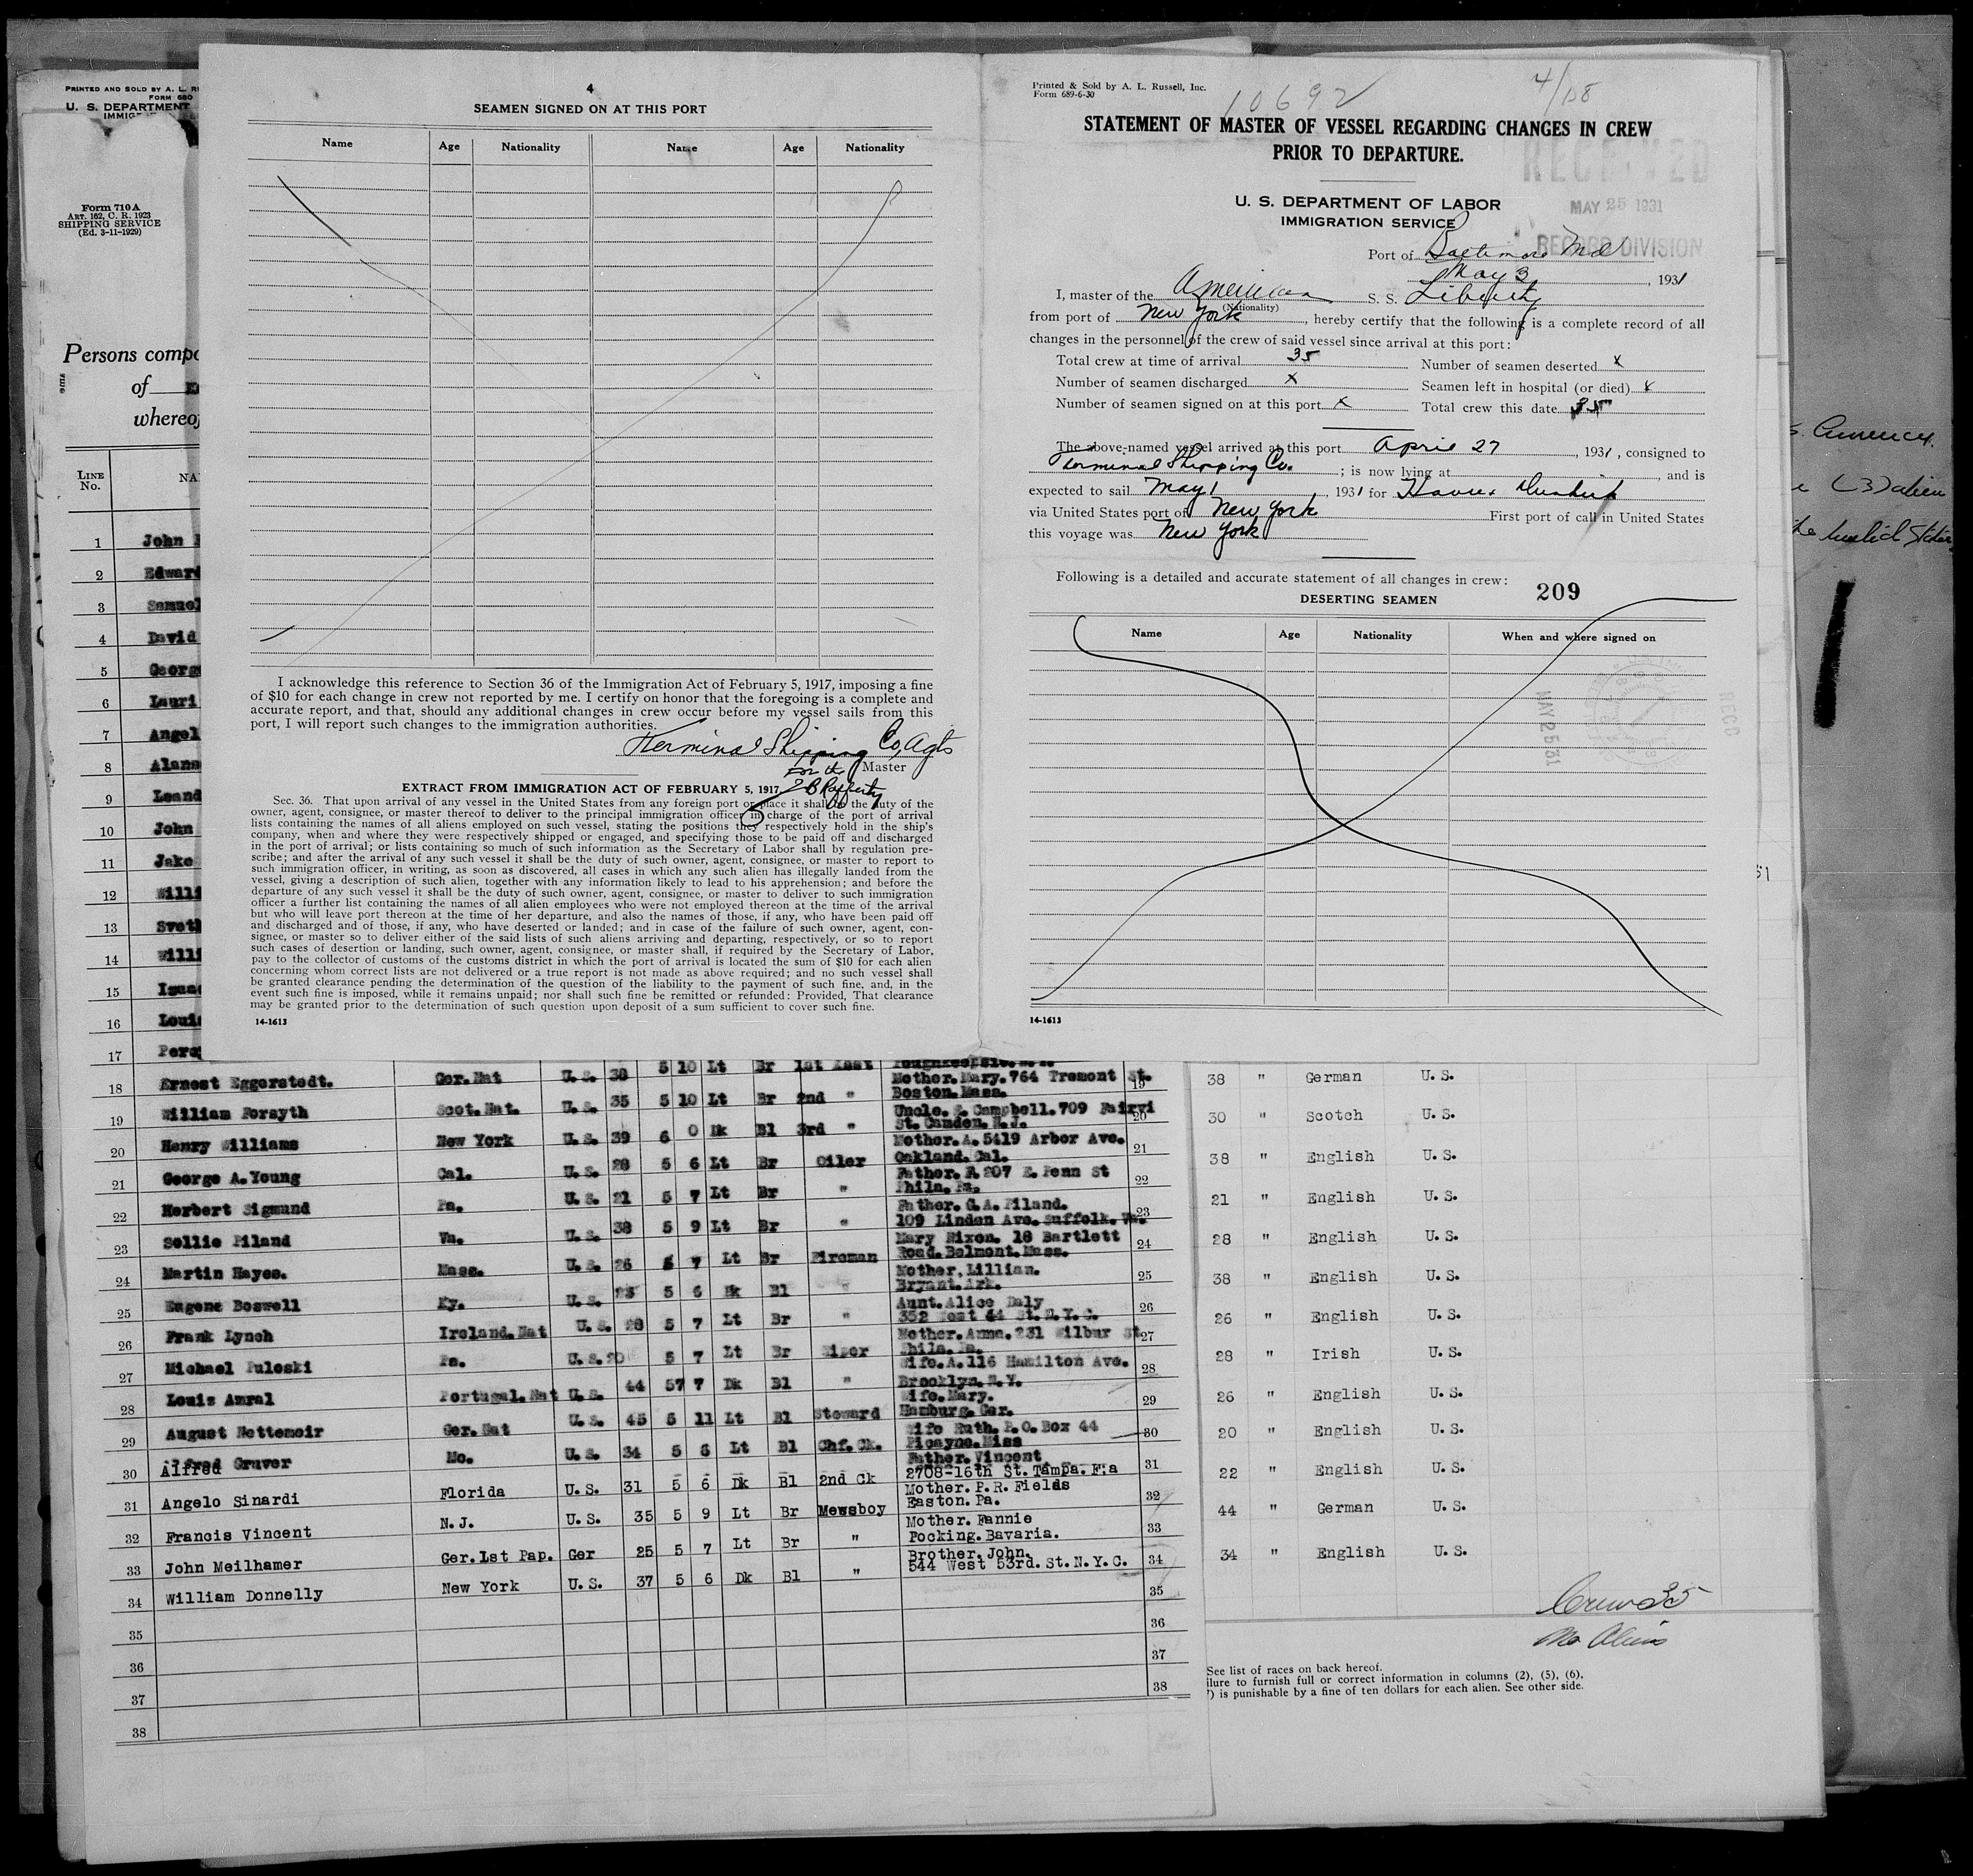 PRINTED AND SOLD BY A. L.
FORM 680
U. S. DEPARTMENT
Form 710A
ART. 162, C. R. 1923
SHIPPING SERVICE
(Ed. 3-11-1929)
Persons
of
LINE
No.
1 John
2 Edward
3 Samuel
4 David
5 George
6 Lauri
7 Angel
8
9
10 John
11 Jake
12
13
14
15
16
17
4
SEAMEN SIGNED ON AT THIS PORT
Name Age Nationality Name Age Nationality
I acknowledge this reference to Section 36 of the Immigration Act of February 5, 1917, imposing a fine
of $10 for each change in crew not reported by me. I certify on honor that the foregoing is a complete and
accurate report, and that, should any additional changes in crew occur before my vessel sails from this
port, I will report such changes to the immigration authorities.
Terminal Shipping Co, Agts
For the Master
EXTRACT FROM IMMIGRATION ACT OF FEBRUARY 5, 1917
Rafferty
Sec. 36. That upon arrival of any vessel in the United States from any foreign port or place it shall be the duty of the
owner, agent, consignee, or master thereof to deliver to the principal immigration officer in charge of the port of arrival
lists containing the names of all aliens employed on such vessel, stating the positions they respectively hold in the ship's
company, when and where they were respectively shipped or engaged, and specifying those to be paid off and discharged
in the port of arrival; or lists containing so much of such information as the Secretary of Labor shall by regulation pre-
scribe; and after the arrival of any such vessel it shall be the duty of such owner, agent, consignee, or master to report to
such immigration officer, in writing, as soon as discovered, all cases in which any such alien has illegally landed from the
vessel, giving a description of such alien, together with any information likely to lead to his apprehension; and before the
departure of any such vessel it shall be the duty of such owner, agent, consignee, or master to deliver to such immigration
officer a further list containing the names of all alien employees who were not employed thereon at the time of the arrival
but who will leave port thereon at the time of her departure, and also the names of those, if any, who have been paid off
and discharged and of those, if any, who have deserted or landed; and in case of the failure of such owner, agent, con-
signee, or master so to deliver either of the said lists of such aliens arriving and departing, respectively, or so to report
such cases of desertion or landing, such owner, agent, consignee, or master shall, if required by the Secretary of Labor,
pay to the collector of customs of the customs district in which the port of arrival is located the sum of $10 for each alien
concerning whom correct lists are not delivered or a true report is not made as above required; and no such vessel shall
be granted clearance pending the determination of the question of the liability to the payment of such fine, and, in the
event such fine is imposed, while it remains unpaid; nor shall such fine be remitted or refunded: Provided, That clearance
may be granted prior to the determination of such question upon deposit of a sum sufficient to cover such fine.
14-1613
Printed & Sold by A. L. Russell, Inc.
Form 689-6-30
10692
STATEMENT OF MASTER OF VESSEL REGARDING CHANGES IN CREW
PRIOR TO DEPARTURE.
RECEIVED
MAY 25 1931
RECORD DIVISION
U. S. DEPARTMENT OF LABOR
IMMIGRATION SERVICE
Port of Baltimore Md
May 3, 1931
I, master of the American S. S. Liberty
(Nationality)
from port of New York, hereby certify that the following is a complete record of all
changes in the personnel of the crew of said vessel since arrival at this port:
Total crew at time of arrival 35 Number of seamen deserted x
Number of seamen discharged x Seamen left in hospital (or died) x
Number of seamen signed on at this port x Total crew this date 35
The above-named vessel arrived at this port April 27, 1931, consigned to
Terminal Shipping Co. ; is now lying at , and is
expected to sail May 1, 1931 for Havre & Dunkirk
via United States port of New York First port of call in United States
this voyage was New York
Following is a detailed and accurate statement of all changes in crew:
209
DESERTING SEAMEN
Name Age Nationality When and where signed on
MAY 25 31
REC'D
14-1613
18 Ernest Eggerstedt. Ger.Nat U. S. 38 5 10 Lt Br 1st Asst
Mother.Mary.764 Tremont St.
Boston.Mass.
19 William Forsyth Scot.Nat. U. S. 35 5 10 Lt Br 2nd "
Uncle. Campbell.709 Fairvi
St. Camden. N.J.
20 Henry Williams New York U. S. 39 6 0 Dk Bl 3rd "
Mother.A.5419 Arbor Ave.
Oakland.Cal.
21 George A.Young Cal. U. S. 28 5 6 Lt Br Oiler
Father. 207 E. Penn St
Phila. Pa.
22 Herbert Sigmund Pa. U. S. 21 5 7 Lt Br "
Father. G.A. Piland.
109 Linden Ave. Suffolk. Va.
23 Sollie Piland Va. U. S. 38 5 9 Lt Br "
Mary Nixon. 18 Bartlett
Road. Belmont.Mass.
24 Martin Hayes. Mass. U. S. 26 5 7 Lt Br Fireman
Mother, Lillian.
Bryant.Ark.
25 Eugene Boswell Ky. U. S. 23 5 6 Dk Bl "
Aunt. Alice Daly
352 West 44 St. N.Y.C.
26 Frank Lynch Ireland.Nat U. S. 28 5 7 Lt Br "
Mother.Anna. 231 Wilbur St
Phila. Pa.
27 Michael Puleski Pa. U. S. 20 5 7 Lt Br Wiper
Wife.A.116 Hamilton Ave.
Brooklyn.N.Y.
28 Louis Amral Portugal.Nat U. S. 44 57 7 Dk Bl "
Wife.Mary.
Hamburg.Ger.
29 August Nettemeir Ger.Nat U. S. 45 5 11 Lt Bl Steward
Wife Ruth. P.O. Box 44
Picayne.Miss
30 Alfred Gruver Mo. U. S. 34 5 6 Lt Bl Chf. Ck.
Father. Vincent
2708-16th St. Tampa. F:a
31 Angelo Sinardi Florida U. S. 31 5 6 Dk Bl 2nd Ck
Mother. P.R. Fields
Easton. Pa.
32 Francis Vincent N.J. U. S. 35 5 9 Lt Br Messboy
Mother. Fannie
Pocking.Bavaria.
33 John Meilhamer Ger.1st Pap. Ger 25 5 7 Lt Br "
Brother. John.
544 West 53rd. St.N.Y.C.
34 William Donnelly New York U. S. 37 5 6 Dk Bl "
35
36
37
38
19 38 " German U. S.
20 30 " Scotch U. S.
21 38 " English U. S.
22 21 " English U. S.
23 28 " English U. S.
24 38 " English U. S.
25 26 " English U. S.
26 28 " Irish U. S.
27 26 " English U. S.
28 20 " English U. S.
29 22 " English U. S.
30 44 " German U. S.
31 34 " English U. S.
32
33
34
35
36
37
38
Crew 35
No Aliens
See list of races on back hereof.
ilure to furnish full or correct information in columns (2), (5), (6),
7) is punishable by a fine of ten dollars for each alien. See other side.
(3) alien
the United States